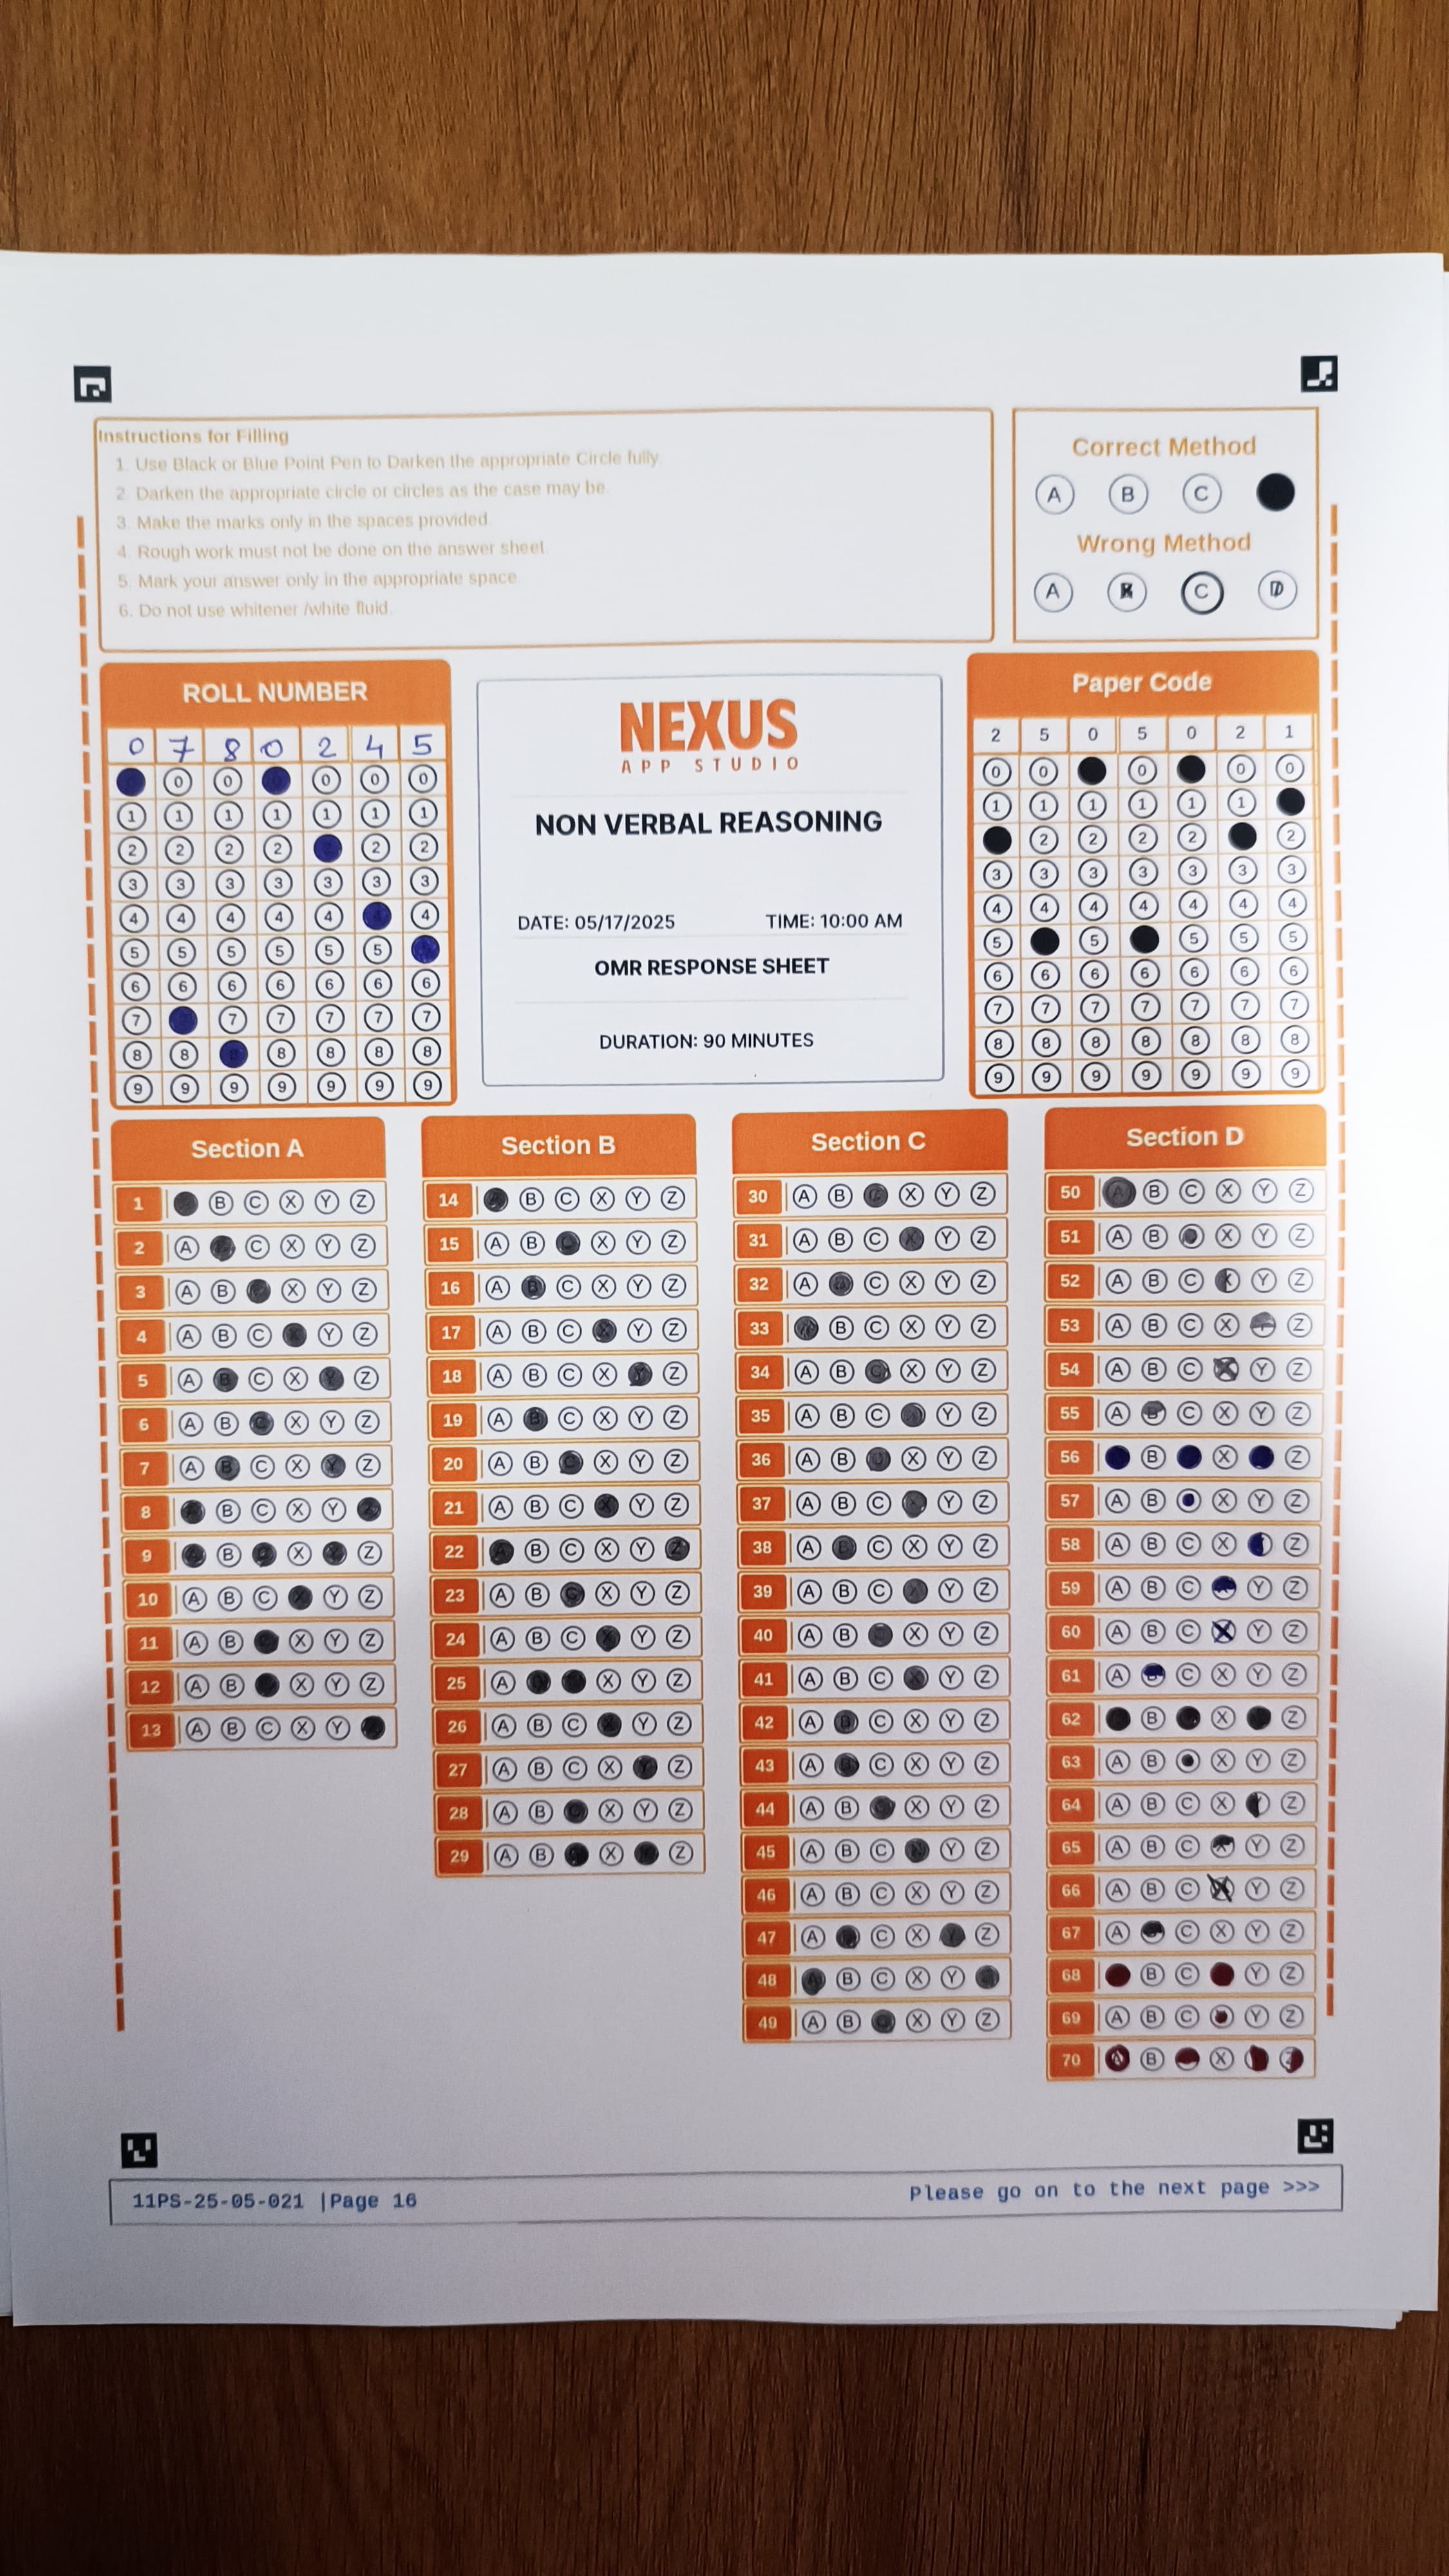 Instructions for Filling
1. Use Black or Blue Point Pen to Darken the appropriate Circle fully.
2. Darken the appropriate circle or circles as the case may be.
3. Make the marks only in the spaces provided.
4. Rough work must not be done on the answer sheet.
5. Mark your answer only in the appropriate space.
6. Do not use whitener /white fluid.
Correct Method
A B C
Wrong Method
A B C D
ROLL NUMBER
0 7 8 0 2 4 5
0 0 0 0 0
1 1 1 1 1 1 1
2 2 2 2 2 2
3 3 3 3 3 3 3
4 4 4 4 4 4
5 5 5 5 5 5
6 6 6 6 6 6 6
7 7 7 7 7 7
8 8 8 8 8 8
9 9 9 9 9 9 9
NEXUS
APP STUDIO
NON VERBAL REASONING
DATE: 05/17/2025 TIME: 10:00 AM
OMR RESPONSE SHEET
DURATION: 90 MINUTES
Paper Code
2 5 0 5 0 2 1
0 0 0 0 0
1 1 1 1 1 1
2 2 2 2 2
3 3 3 3 3 3 3
4 4 4 4 4 4 4
5 5 5 5 5
6 6 6 6 6 6 6
7 7 7 7 7 7 7
8 8 8 8 8 8 8
9 9 9 9 9 9 9
Section A
1 B C X Y Z
2 A C X Y Z
3 A B X Y Z
4 A B C Y Z
5 A B C X Y Z
6 A B C X Y Z
7 A B C X Y Z
8 B C X Y
9 B X Z
10 A B C Y Z
11 A B X Y Z
12 A B X Y Z
13 A B C X Y
Section B
14 B C X Y Z
15 A B X Y Z
16 A B C X Y Z
17 A B C Y Z
18 A B C X Y Z
19 A B C X Y Z
20 A B X Y Z
21 A B C X Y Z
22 B C X Y Z
23 A B X Y Z
24 A B C Y Z
25 A X Y Z
26 A B C Y Z
27 A B C X Y Z
28 A B X Y Z
29 A B X Z
Section C
30 A B C X Y Z
31 A B C X Y Z
32 A C X Y Z
33 B C X Y Z
34 A B C X Y Z
35 A B C Y Z
36 A B X Y Z
37 A B C Y Z
38 A B C X Y Z
39 A B C X Y Z
40 A B X Y Z
41 A B C X Y Z
42 A B C X Y Z
43 A B C X Y Z
44 A B X Y Z
45 A B C Y Z
46 A B C X Y Z
47 A C X Y Z
48 A B C X Y
49 A B X Y Z
Section D
50 A B C X Y Z
51 A B X Y Z
52 A B C X Y Z
53 A B C X Z
54 A B C X Y Z
55 A B C X Y Z
56 B X Z
57 A B X Y Z
58 A B C X Z
59 A B C Y Z
60 A B C X Y Z
61 A C X Y Z
62 B X Z
63 A B X Y Z
64 A B C X Z
65 A B C Y Z
66 A B C X Y Z
67 A C X Y Z
68 B C Y Z
69 A B C Y Z
70 A B X
11PS-25-05-021 |Page 16
Please go on to the next page >>>